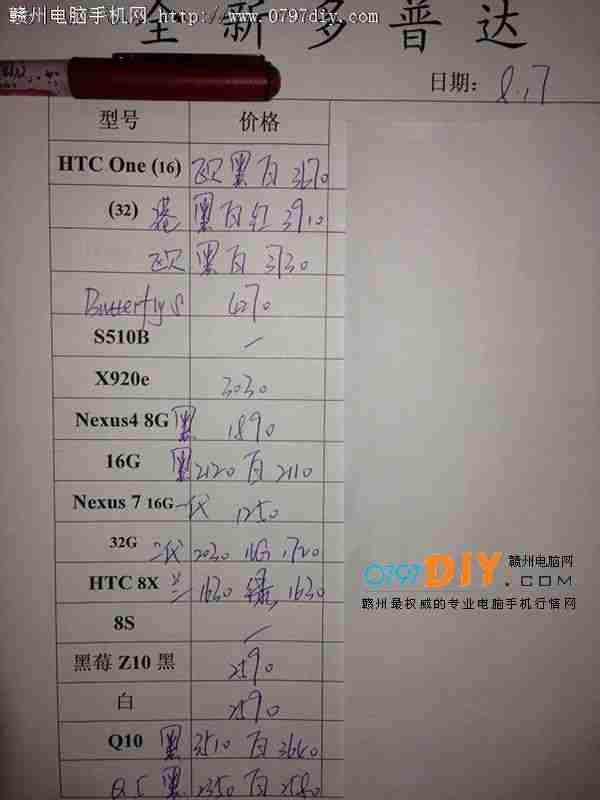 赣州电脑手机网 Http://www.0797diy.com
全新多普达
日期: 8.17
型号 价格
HTC One (16) 欧 黑 白 3670
(32) 港 黑 白 红 3910
欧 黑 白 3930
Butterfly S 4270
S510B —
X920e 3030
Nexus4 8G 黑 1890
16G 黑 2120 白 2110
Nexus 7 16G 一代 1250
32G 二代 2030 16G 1720
HTC 8X 兰 1630 1630
8S —
黑莓 Z10 黑 2590
白 2590
Q10 黑 3510 白 3640
Q5 黑 2350 白 2580
0797DIY.COM 赣州电脑网
赣州最权威的专业电脑手机行情网